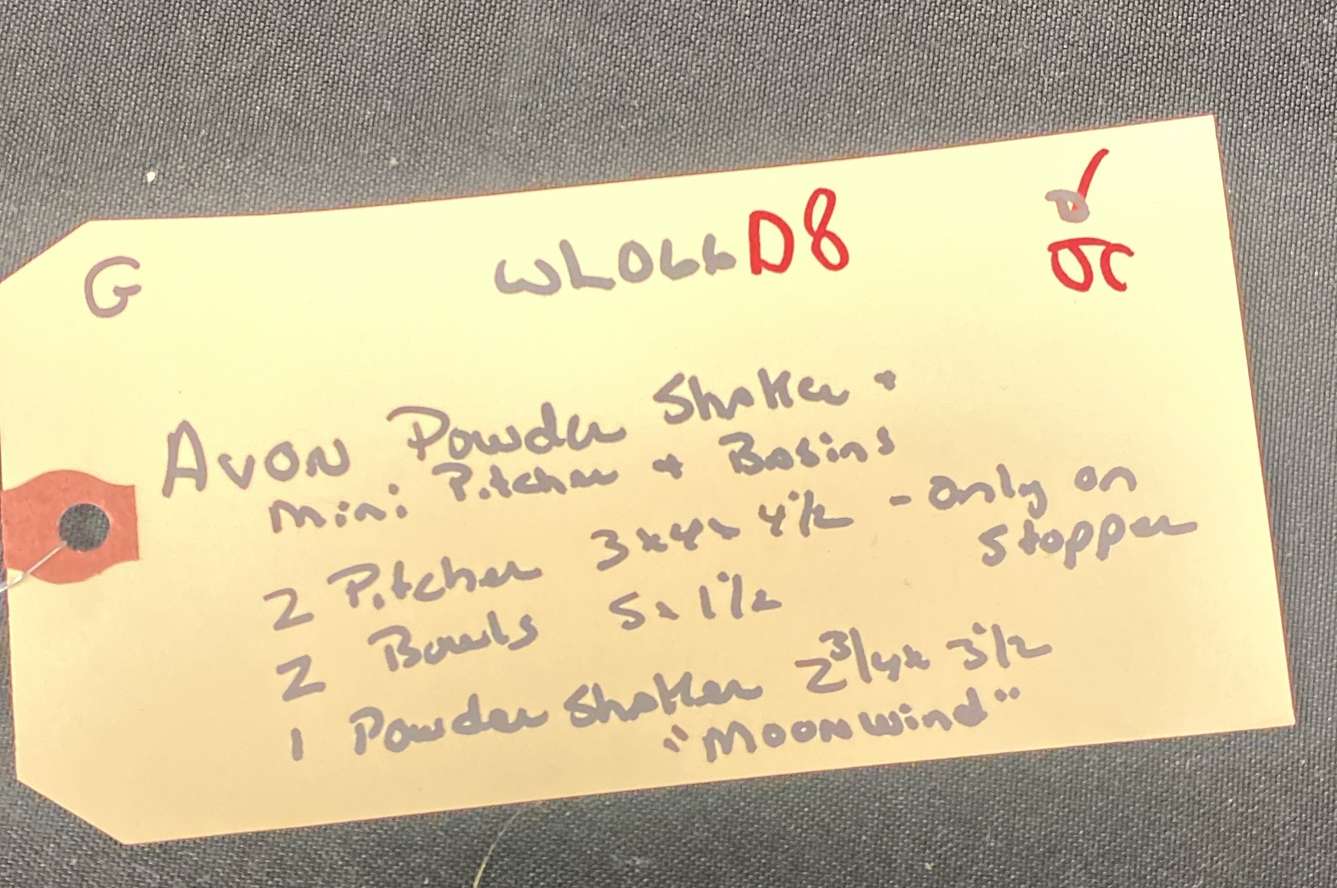 G WL066 D8
OC
AVON Powder Shaker +
mini Pitcher + Basins
2 Pitcher 3x4x 4 1/2 - only on
stopper
2 Bowls 5x 1 1/2
1 Powder Shaker 2 3/4x 3 1/2
"Moonwind"